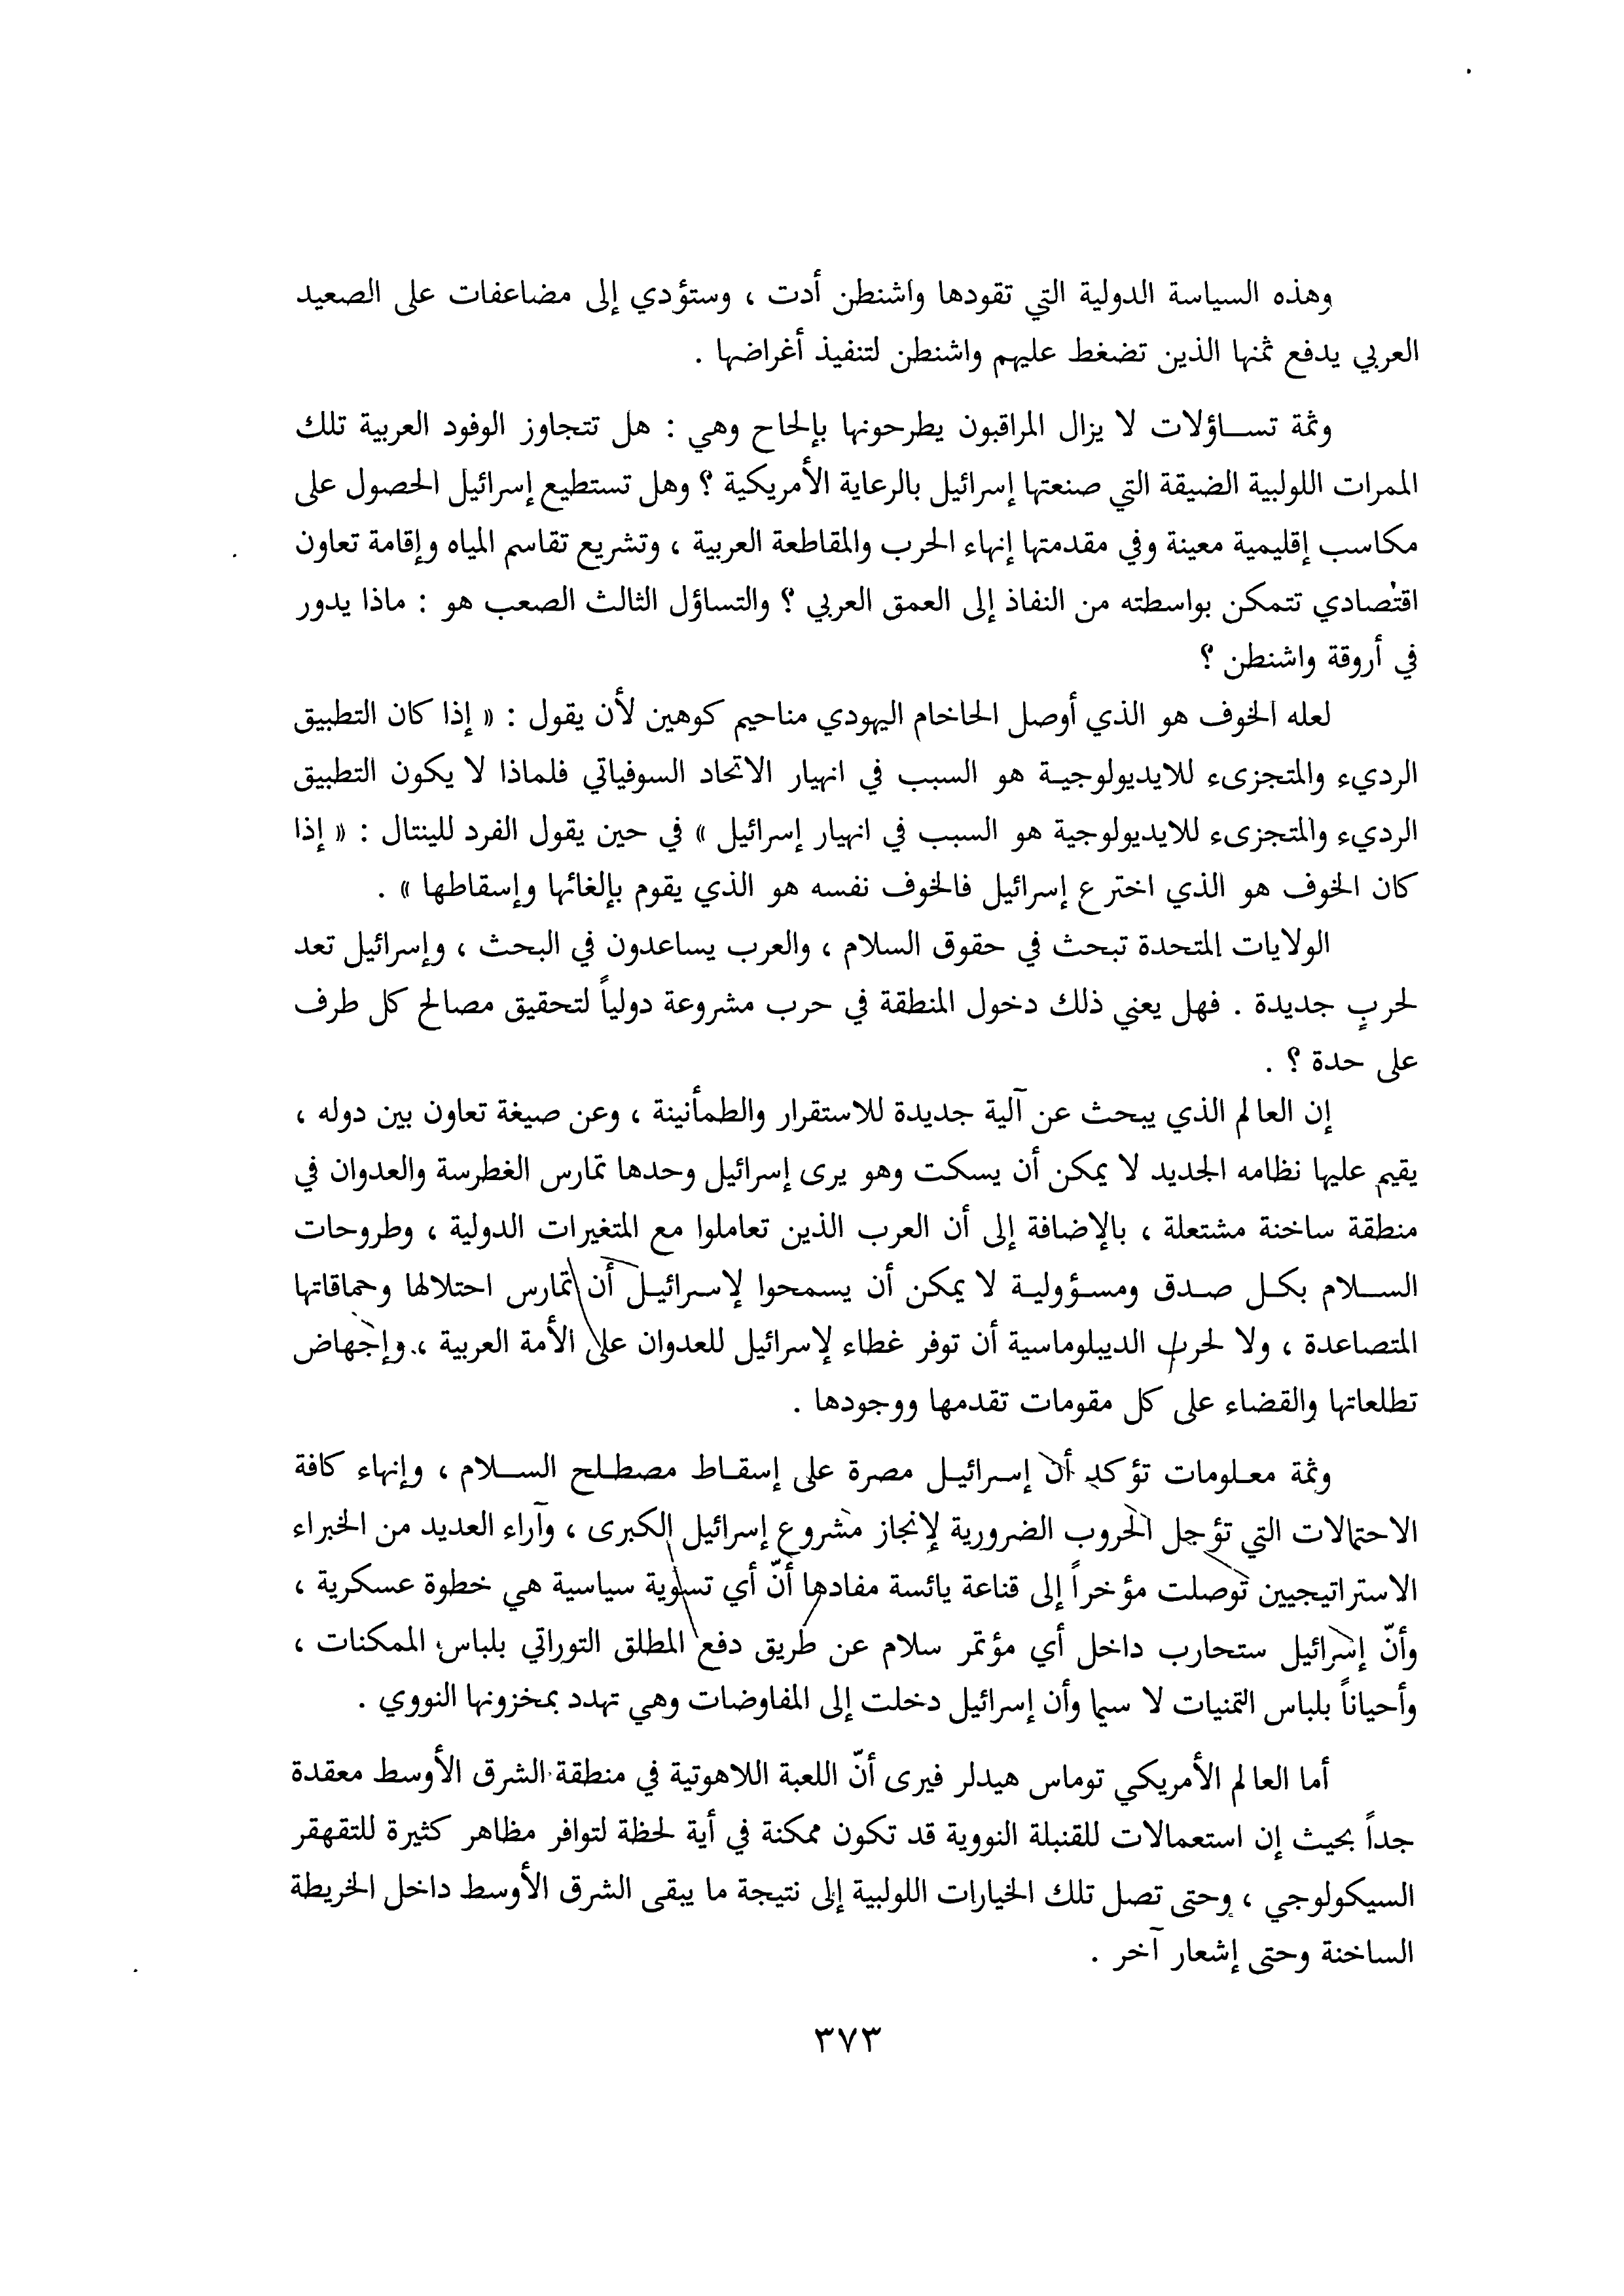 وهذه السياسة الدولية التي تقودها واشنطن أدت ، وستؤدي إلى مضاعفات على الصعيد
العربي يدفع ثمنها الذين تضغط عليهم واشنطن لتنفيذ أغراضها .
وثمة تساؤلات لا يزال المراقبون يطرحونها بإلحاح وهي : هل تتجاوز الوفود العربية تلك
الممرات اللولبية الضيقة التي صنعتها إسرائيل بالرعاية الأمريكية ؟ وهل تستطيع إسرائيل الحصول على
مكاسب إقليمية معينة وفي مقدمتها إنهاء الحرب والمقاطعة العربية ، وتشريع تقاسم المياه وإقامة تعاون
اقتصادي تتمكن بواسطته من النفاذ إلى العمق العربي ؟ والتساؤل الثالث الصعب هو : ماذا يدور
في أروقة واشنطن ؟
لعله الخوف هو الذي أوصل الحاخام اليهودي مناحيم كوهين لأن يقول : « إذا كان التطبيق
الرديء والمتجزىء للايديولوجية هو السبب في انهيار الاتحاد السوفياتي فلماذا لا يكون التطبيق
الرديء والمتجزىء للايديولوجية هو السبب في انهيار إسرائيل » في حين يقول الفرد للينتال : « إذا
كان الخوف هو الذي اخترع إسرائيل فالخوف نفسه هو الذي يقوم بإلغائها وإسقاطها » .
الولايات المتحدة تبحث في حقوق السلام ، والعرب يساعدون في البحث ، وإسرائيل تعد
لحربٍ جديدة . فهل يعني ذلك دخول المنطقة في حرب مشروعة دولياً لتحقيق مصالح كل طرف
على حدة ؟ .
إن العالم الذي يبحث عن آلية جديدة للاستقرار والطمأنينة ، وعن صيغة تعاون بين دوله ،
يقيم عليها نظامه الجديد لا يمكن أن يسكت وهو يرى إسرائيل وحدها تمارس الغطرسة والعدوان في
منطقة ساخنة مشتعلة ، بالإضافة إلى أن العرب الذين تعاملوا مع المتغيرات الدولية ، وطروحات
السلام بكل صدق ومسؤولية لا يمكن أن يسمحوا لإسرائيل أن تمارس احتلالها وحماقاتها
المتصاعدة ، ولا لحرب الديبلوماسية أن توفر غطاء لإسرائيل للعدوان على الأمة العربية ، وإجهاض
تطلعاتها والقضاء على كل مقومات تقدمها ووجودها .
وثمة معلومات تؤكد أن إسرائيل مصرة على إسقاط مصطلح السلام ، وإنهاء كافة
الاحتمالات التي تؤجل الحروب الضرورية لإنجاز مشروع إسرائيل الكبرى ، وآراء العديد من الخبراء
الاستراتيجيين توصلت مؤخراً إلى قناعة يائسة مفادها أنّ أي تسوية سياسية هي خطوة عسكرية ،
وأنّ إسرائيل ستحارب داخل أي مؤتمر سلام عن طريق دفع المطلق التوراتي بلباس الممكنات ،
وأحياناً بلباس التمنيات لا سيما وأن إسرائيل دخلت إلى المفاوضات وهي تهدد بمخزونها النووي .
أما العالم الأمريكي توماس هيدلر فيرى أنّ اللعبة اللاهوتية في منطقة الشرق الأوسط معقدة
جداً بحيث إن استعمالات للقنبلة النووية قد تكون ممكنة في أية لحظة لتوافر مظاهر كثيرة للتقهقر
السيكولوجي ، وحتى تصل تلك الخيارات اللولبية إلى نتيجة ما يبقى الشرق الأوسط داخل الخريطة
الساخنة وحتى إشعار آخر .
٣٧٣